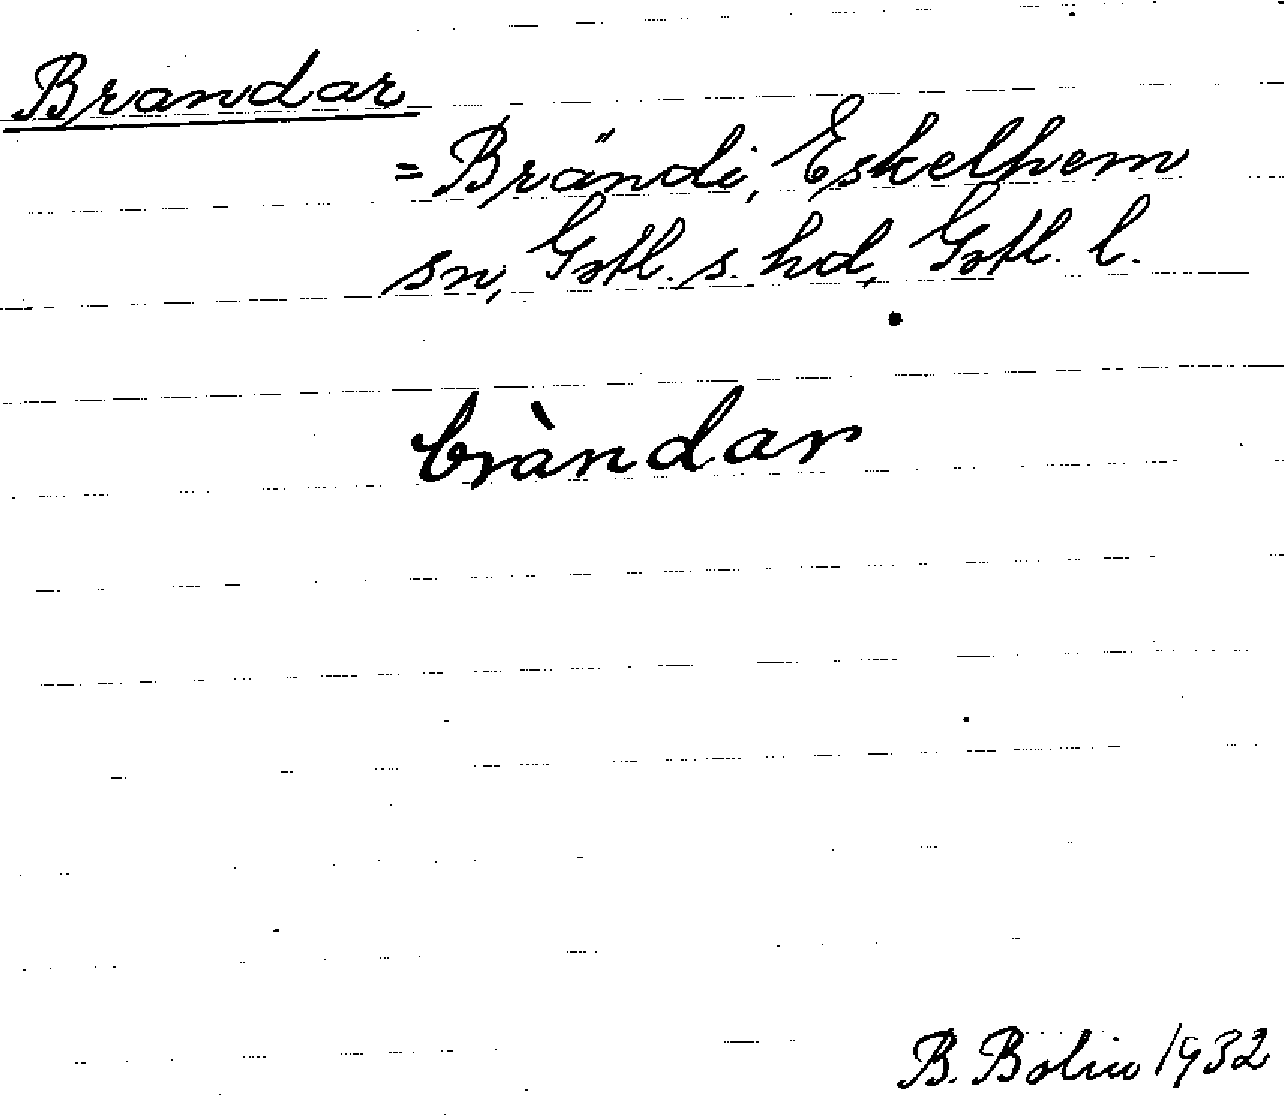 Brandar
= Brändi, Eskelhem
sn, Gotl. s. hd, Gotl. l.
bràndar
B. Bolin 1932